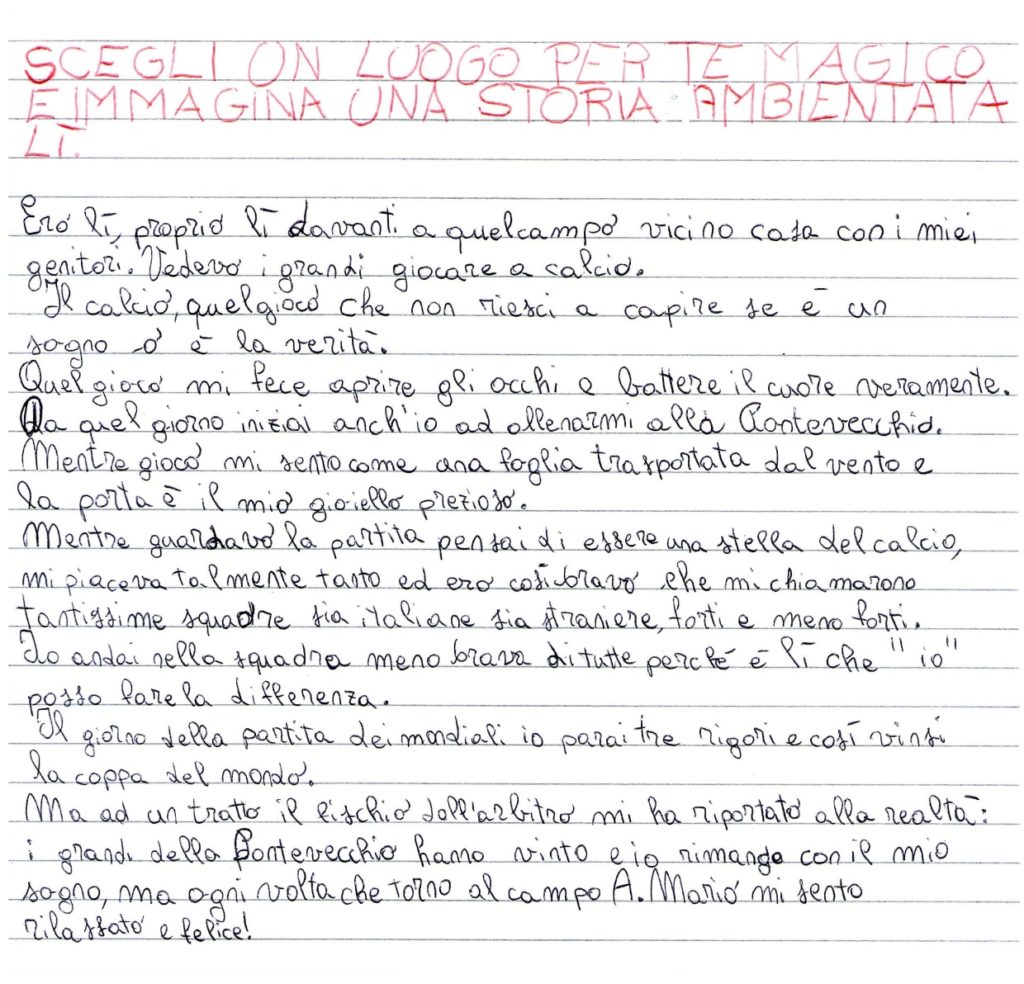 SCEGLI UN LUOGO PER TE MAGICO
E IMMAGINA UNA STORIA AMBIENTATA
LÌ.
Ero lì, proprio lì davanti a quel campo vicino casa con i miei
genitori. Vedevo i grandi giocare a calcio.
Il calcio, quel gioco che non riesci a capire se è un
sogno o è la verità.
Quel gioco mi fece aprire gli occhi e battere il cuore veramente.
Da quel giorno iniziai anch'io ad allenarmi alla Pontevecchio.
Mentre gioco mi sento come una foglia trasportata dal vento e
la porta è il mio gioiello prezioso.
Mentre guardavo la partita pensai di essere una stella del calcio,
mi piaceva talmente tanto ed ero così bravo che mi chiamarono
tantissime squadre sia italiane sia straniere, forti e meno forti.
Io andai nella squadra meno brava di tutte perché è lì che "io"
posso fare la differenza.
Il giorno della partita dei mondiali io parai tre rigori e così vinsi
la coppa del mondo.
Ma ad un tratto il fischio dall'arbitro mi ha riportato alla realtà:
i grandi della Pontevecchio hanno vinto e io rimango con il mio
sogno, ma ogni volta che torno al campo A. Mario mi sento
rilassato e felice!